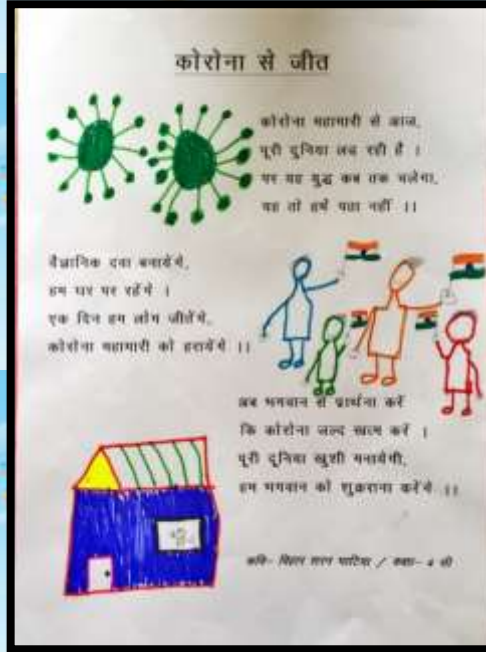 कोरोना से जीत
कोरोना महामारी से आज,
पूरी दुनिया लड़ रही है ।
पर यह युद्ध कब तक चलेगा,
यह तो हमें पता नहीं ।।
वैज्ञानिक दवा बनायेंगे,
हम घर पर रहेंगे ।
एक दिन हम लोग जीतेंगे,
कोरोना महामारी को हरायेंगे ।।
अब भगवान से प्रार्थना करें
कि कोरोना जल्द खत्म करें ।
पूरी दुनिया खुशी मनायेगी,
हम भगवान को शुक्रराना करेंगे ।।
कवि- सरन भाटिया / कक्षा- 4 सी